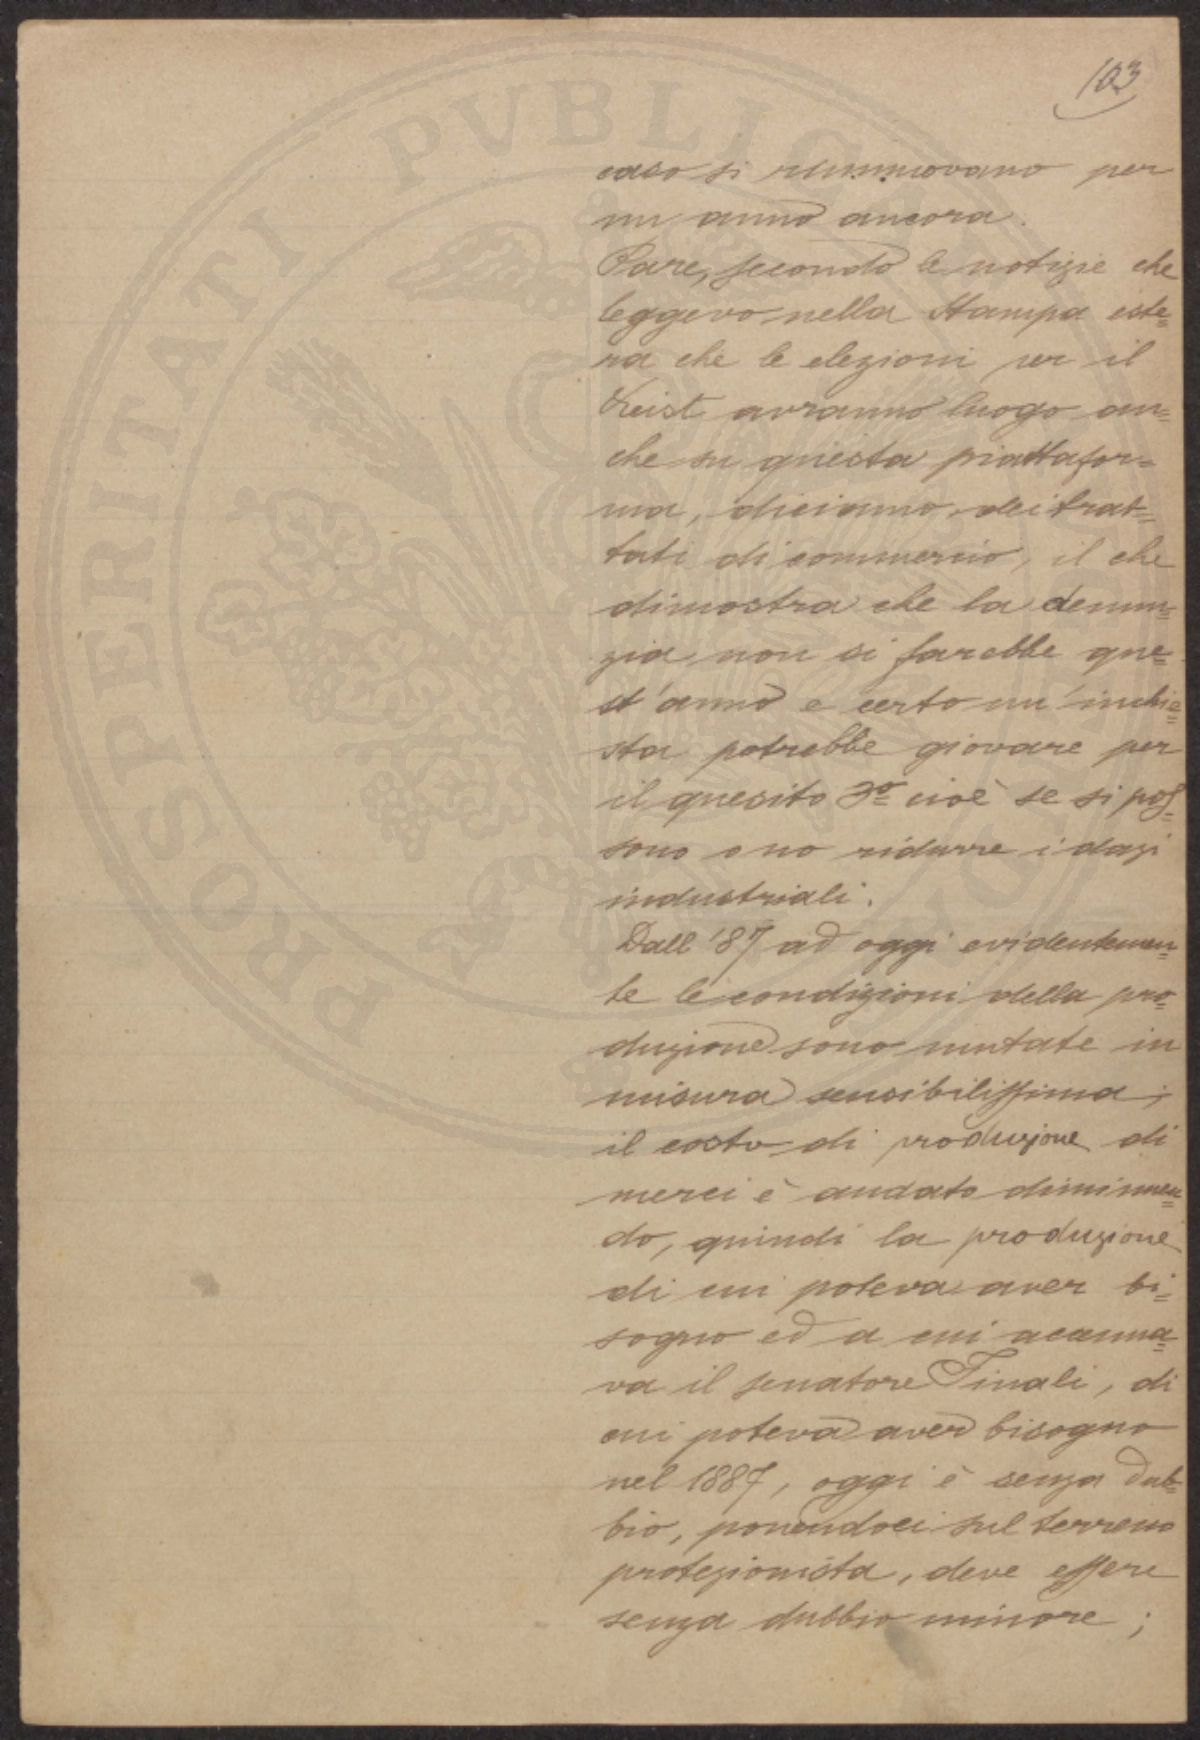 103
caso si rinnuovano per
un anno ancora.
Pare, secondo le notizie che
leggevo nella stampa este=
ra che le elezioni per il
avranno luogo an=
che su questa piattafor=
ma, diciamo, dei trat=
tati di commercio, il che
dimostra che la denun=
zia non si farebbe que=
st'anno e certo un'inchie=
sta potrebbe giovare per
il quesito 3º cioè se si pos=
sono o no ridurre i dazi
industriali.
Dall'87 ad oggi evidentemen=
te le condizioni della pro=
duzione sono mutate in
misura sensibilissima;
il costo di produzione di
merci è andato diminuen=
do, quindi la produzione
di cui poteva aver bi=
sogno ed a cui accenna=
va il senatore Finali, di
cui poteva aver bisogno
nel 1887, oggi è senza dub=
bio, ponendoci sul terreno
protezionista, deve essere
senza dubbio minore;
PROSPERITATI PVBLICAE